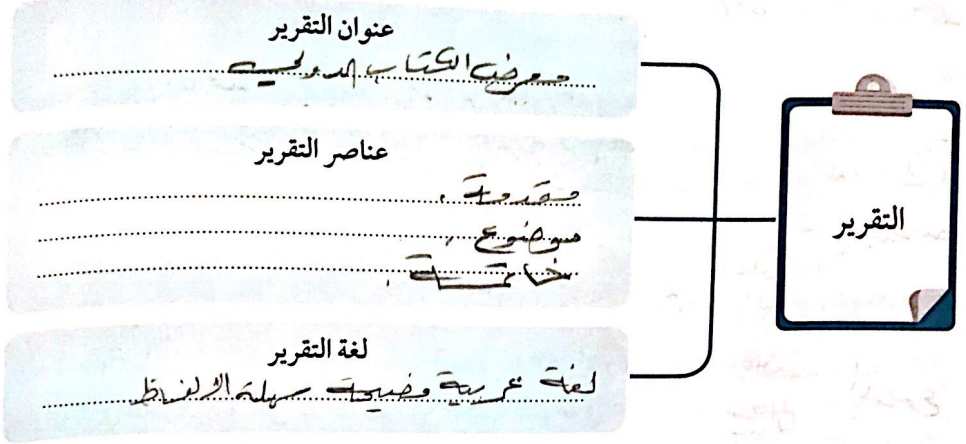 عنوان التقرير
معرض الكتاب الدولي
عناصر التقرير
مقدمة.
موضوع.
خاتمة.
التقرير
لغة التقرير
لغة عربية فصيحة سهلة الألفاظ